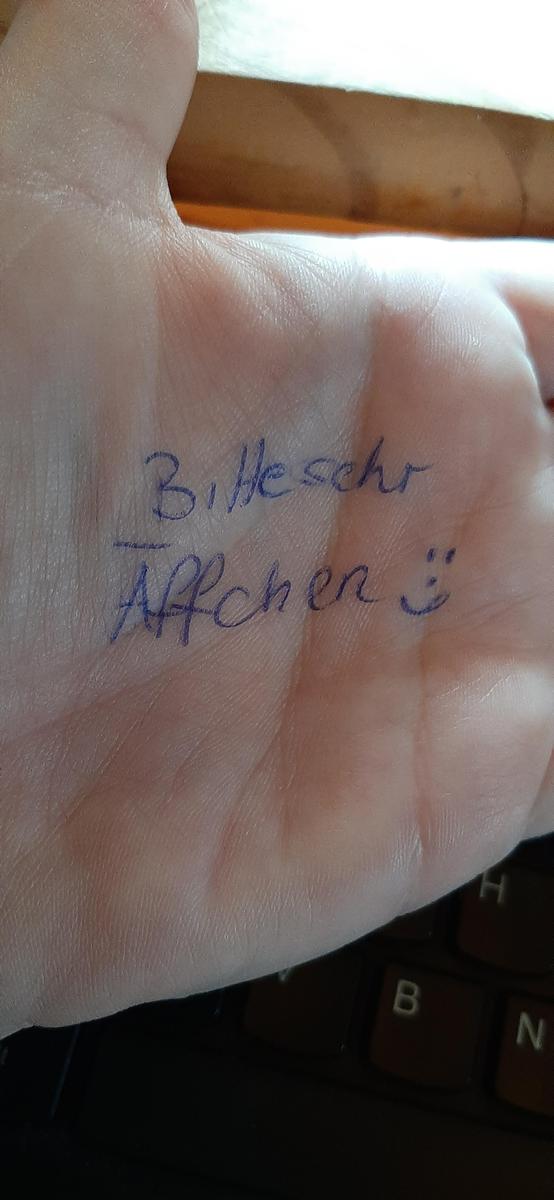 Bitteschr
Äffchen :)
H
B
N